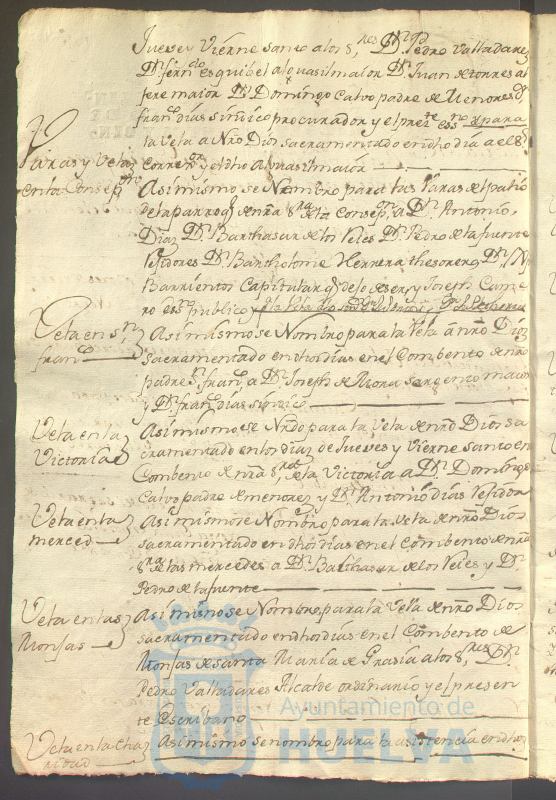 Jueves y Vierne santo a los s.res D.n Pedro Valladares
D.n fern.do esquibel alguasil maior D.n Juan de torres al
fere maior D.n Domingo Calvo padre de Menores y D.n
fran.co dias sindico procurador y el pres.te ess.no
la Veta a Nro Dios sacramentado en dho dia a el s.r
Corre y el dho Alguasil maior
Varas y Veta
en la Consep.on
Asi mismo se Nombro para las Varas del patio
de la parroq.a de nra s.ra de la Consep.on a D.n Antonio
Dias D.n Balthasar de los Veles D.n Pedro de la fuente
Rejidores D.n Bartholome Herrera thesorero D.n
Barrientos Capitular q. dejo de ser y Joseph
ro ess.no publico y
Veta en s.n
fran.co
Asi mismo se Nombro para la Veta a nro Dios
sacramentado en dhos dias en el Combento de nro
padre s.n fran.co a D.n Joseph de Mora sargento maior
y D.n fran.co dias sindico
Veta en la
Victoria
Asi mismo se Nro para la Veta de nro Dios sa
cramentado en los dias de Jueves y Vierne santo en
Combento de nra s.ra de la Victoria a D.n Domingo
Calvo padre de menores y D.n Antonio dias Rejidor
Veta en la
merced
Asi mismo se Nombro para la Veta de nro Dios
sacramentado en dhos dias en el Combento de nra
s.ra de las mercedes a D.n Balthasar de los Veles y D.n
Pedro de la fuente
Veta en las
Monjas
Asi mismo se Nombro para la Veta de nro Dios
sacramentado en dhos dias en el Combento de
Monjas de santa Maria de Grasia a los s.res D.n
Pedro Valladares Alcalde ordinario y el presen
te Escribano
Veta en la Cha
ridad
Asi mismo se nombro para la asistencia en dhos
Ayuntamiento de
HUELVA